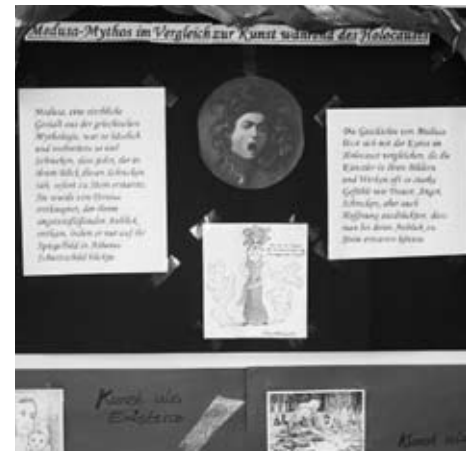 Medusa-Mythos im Vergleich zur Kunst während des Holocausts
Medusa, eine sterbliche
Gestalt aus der griechischen
Mythologie, war so hässlich
und verbreitete so viel
Schrecken, dass jeder, der in
ihrem Blick diesen Schrecken
sah, sofort zu Stein erstarrte.
Sie wurde von Perseus
enthauptet, der ihrem
angsteinflößenden Anblick
entkam, indem er nur auf ihr
Spiegelbild in Athenas
Schutzschild blickte.
Die Geschichte von Medusa
lässt sich mit der Kunst im
Holocaust vergleichen, da die
Künstler in ihren Bildern
und Werken oft so starke
Gefühle von Trauer, Angst,
Schrecken, aber auch
Hoffnung ausdrückten, dass
man bei deren Anblick zu
Stein erstarren könnte.
Kunst als
Existenz
Kunst als